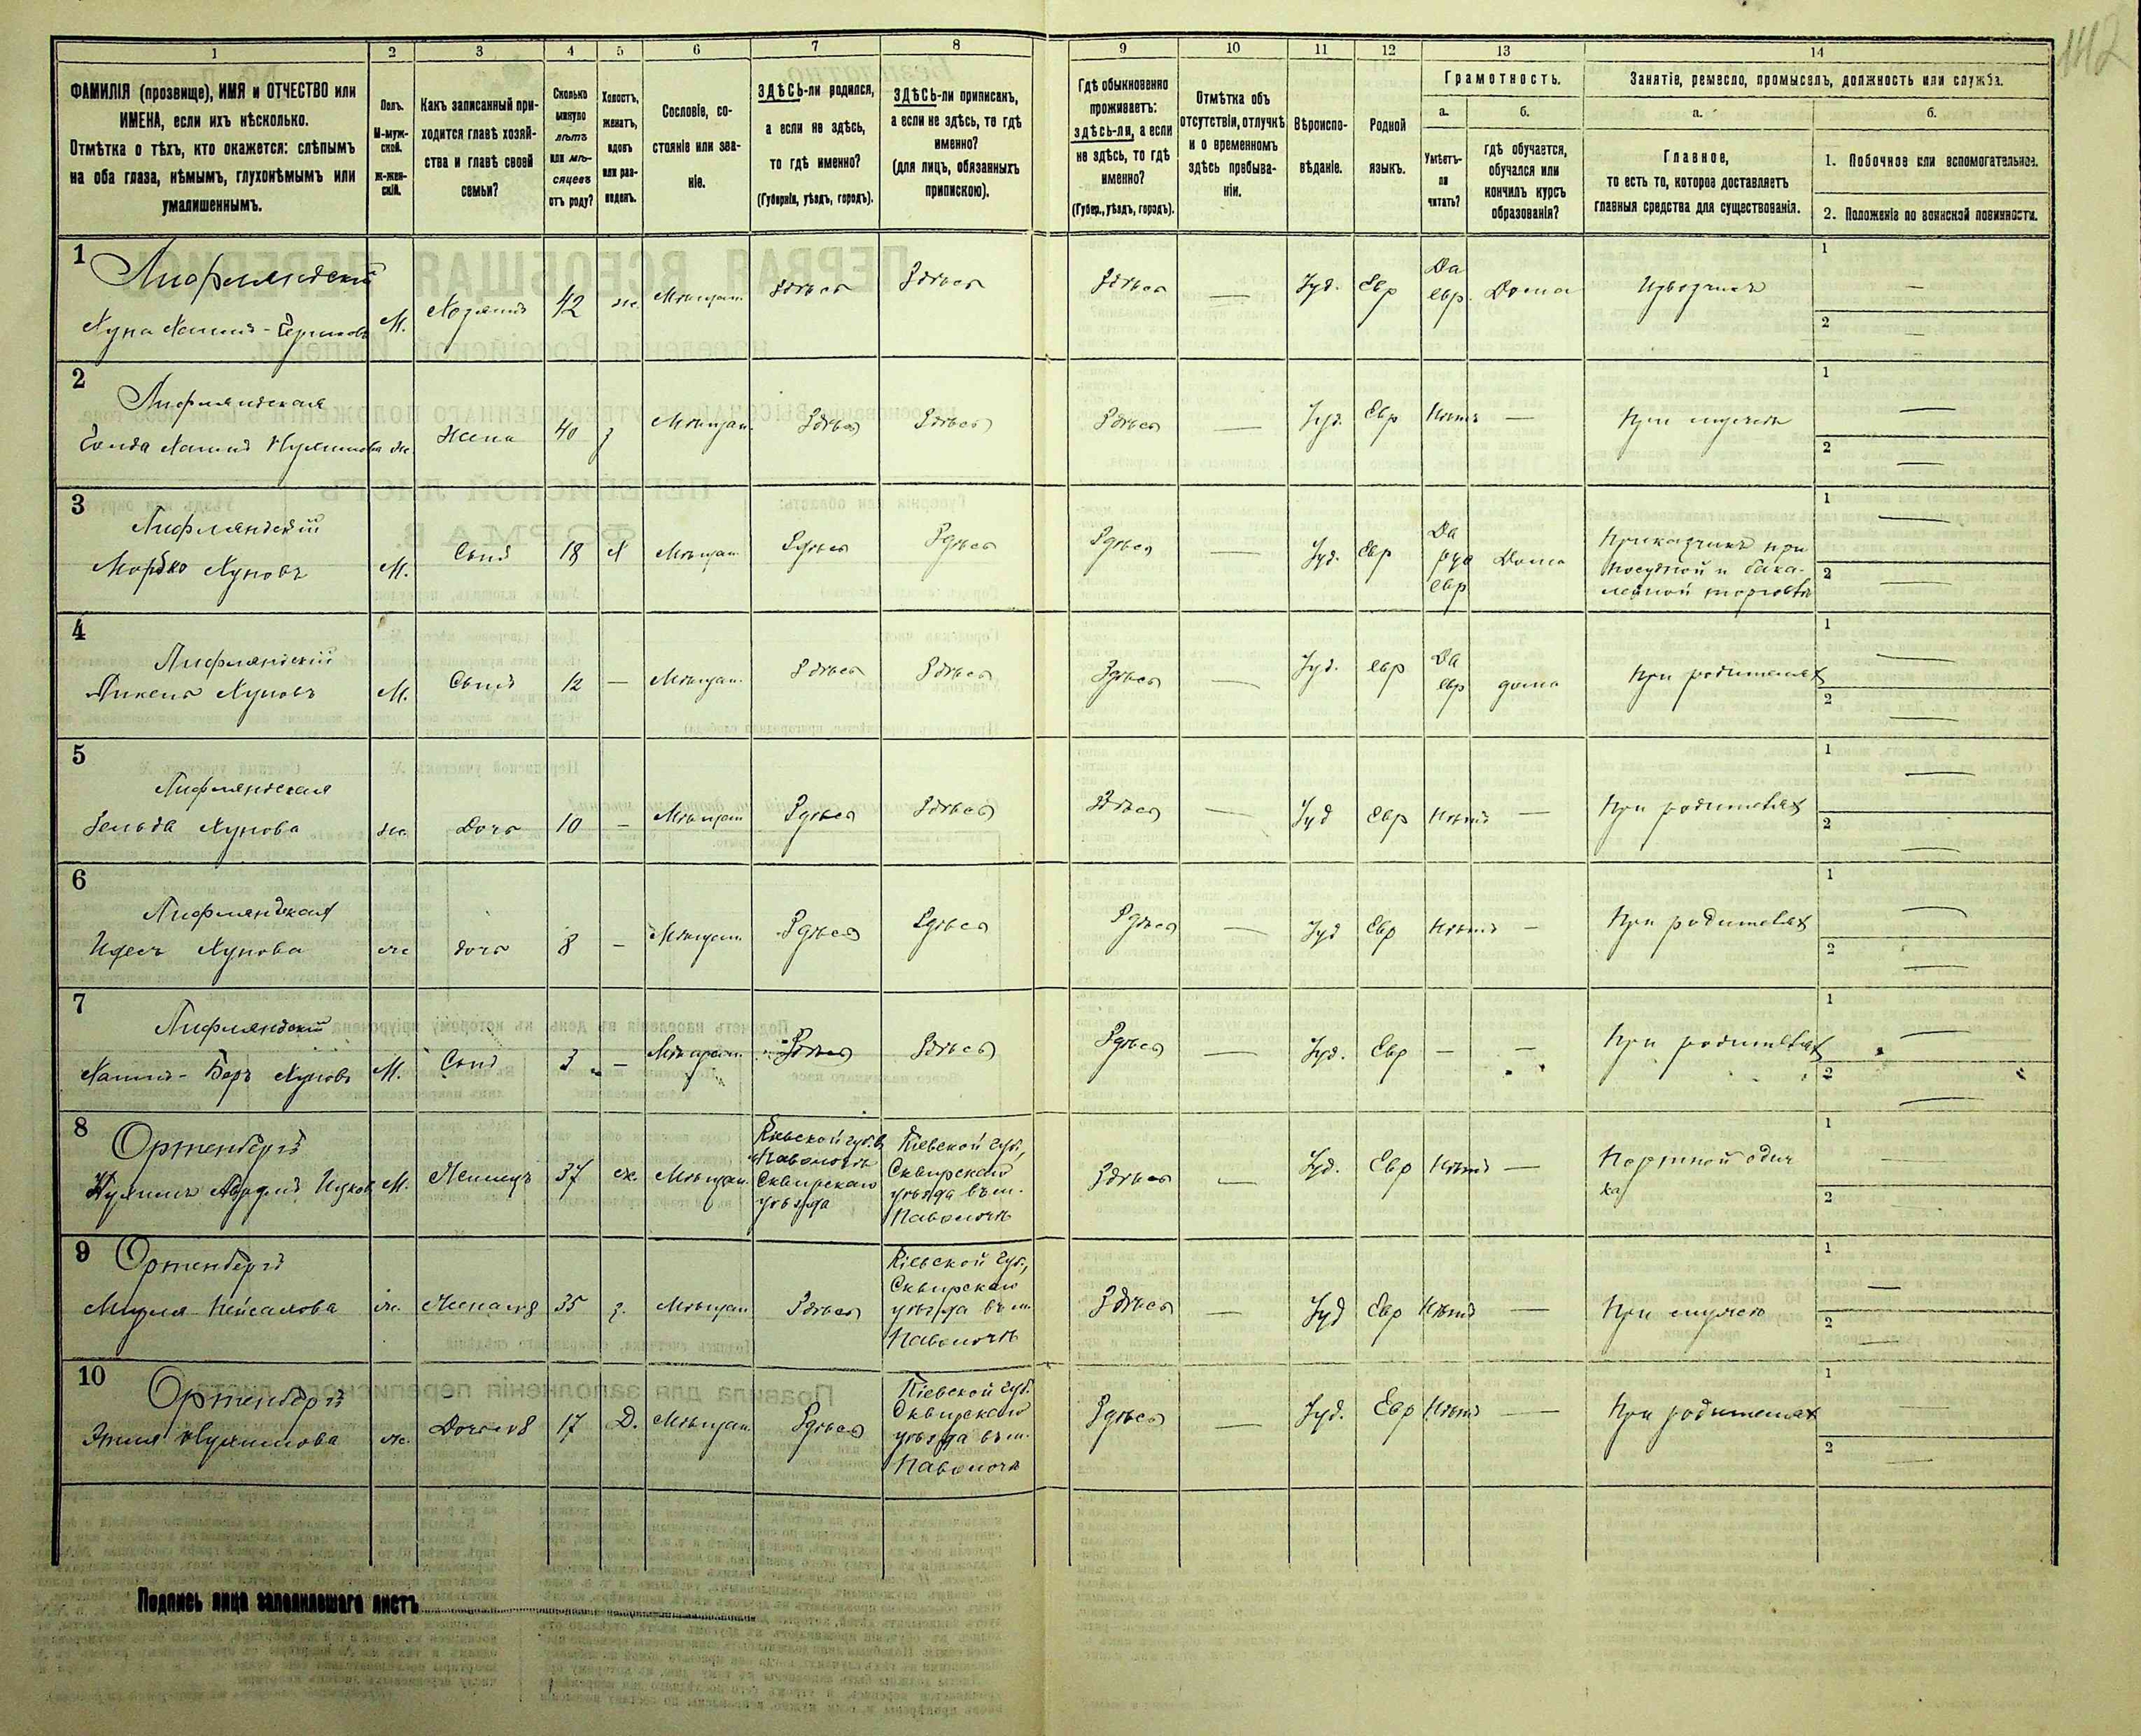 142
1 2 3 4 5 6 7 8 9 10 11 12 13 14
ФАМИЛІЯ (прозвище), ИМЯ и ОТЧЕСТВО или
ИМЕНА, если ихъ нѣсколько.
Отмѣтка о тѣхъ, кто окажется: слѣпымъ
на оба глаза, нѣмымъ, глухонѣмымъ или
умалишеннымъ.
Полъ.
М-муж-
ской.
Ж-жен-
скій.
Какъ записанный при-
ходится главѣ хозяй-
ства и главѣ своей
семьи?
Сколько
минуло
лѣтъ
или мѣ-
сяцевъ
отъ роду?
Холостъ,
женатъ,
вдовъ
или раз-
веденъ.
Сословіе, со-
стояніе или зва-
ніе.
ЗДѢСЬ-ли родился,
а если не здѣсь,
то гдѣ именно?
(Губернія, уѣздъ, городъ).
ЗДѢСЬ-ли приписанъ,
а если не здѣсь, то гдѣ
именно?
(для лицъ, обязанныхъ
припискою).
Гдѣ обыкновенно
проживаетъ:
здѣсь-ли, а если
не здѣсь, то гдѣ
именно?
(Губер., уѣздъ, городъ).
Отмѣтка объ
отсутствіи, отлучкѣ
и о временномъ
здѣсь пребыва-
ніи.
Вѣроиспо-
вѣданіе.
Родной
языкъ.
Грамотность.
а.
Умѣетъ-
ли
читать?
б.
гдѣ обучается,
обучался или
кончилъ курсъ
образованія?
Занятіе, ремесло, промыселъ, должность или служба.
а.
Главное,
то есть то, которое доставляетъ
главныя средства для существованія.
б.
1. Побочное или вспомогательное.
2. Положеніе по воинской повинности.
1 Лифляндскій
Хуна Хаимъ- М. Хозяинъ 42 ж. Мѣщан. Здѣсь Здѣсь Здѣсь — Іуд. Евр Да
евр. Дома Извозчикъ 1 — 2 —
2 Лифляндская
Хаимъ ж. Жена 40 з Мѣщан. Здѣсь Здѣсь Здѣсь — Іуд. Евр Нѣтъ — При мужѣ 1 — 2 —
3 Лифляндскій
Мордко Хуновъ М. Сынъ 18 Х Мѣщан. Здѣсь Здѣсь Здѣсь — Іуд. Евр Да
рус
евр Дома Приказчикъ при
посудной и бака-
лейной торговлѣ 1 — 2 —
4 Лифляндскій
Хуновъ М. Сынъ 12 — Мѣщан. Здѣсь Здѣсь Здѣсь — Іуд. евр Да
евр дома При родителях 1 — 2 —
5 Лифляндская
Зельда Хунова ж. Дочь 10 — Мѣщан Здѣсь Здѣсь Здѣсь — Іуд Евр Нѣтъ — При родителях 1 — 2 —
6 Лифляндская
Идесъ Хунова ж дочь 8 — Мѣщан. Здѣсь Здѣсь Здѣсь — Іуд Евр Нѣтъ — При родителях 1 — 2 —
7 Лифляндскій
Хаимъ-Беръ Хуновъ М. Сынъ 3 — Мѣщан. Здѣсь Здѣсь Здѣсь — Іуд. Евр — — При родителях 1 — 2 —
8 Ортенбергъ
М. Жилецъ 37 ж. Мѣщан. Кіевской губ. в
Паволочѣ
Сквирскаго
уѣзда
Кіевской губ.,
Сквирскаго
уѣзда въ м.
Паволочѣ
Здѣсь — Іуд. Евр Нѣтъ — Портной одеж
ка 1 — 2 —
9 Ортенбергъ
ж. 35 з. Мѣщан Здѣсь Кіевской Губ.,
Сквирскаго
уѣзда въ м.
Паволочѣ
Здѣсь — Іуд Евр Нѣтъ — При мужѣ 1 — 2 —
10 Ортенбергъ
ж. 17 Д. Мѣщан. Здѣсь Кіевской губ.
Сквирскаго
уѣзда въ м.
Паволочѣ
Здѣсь — Іуд. Евр Нѣтъ — При родителях 1 — 2 —
Подпись лица заполнившаго листъ